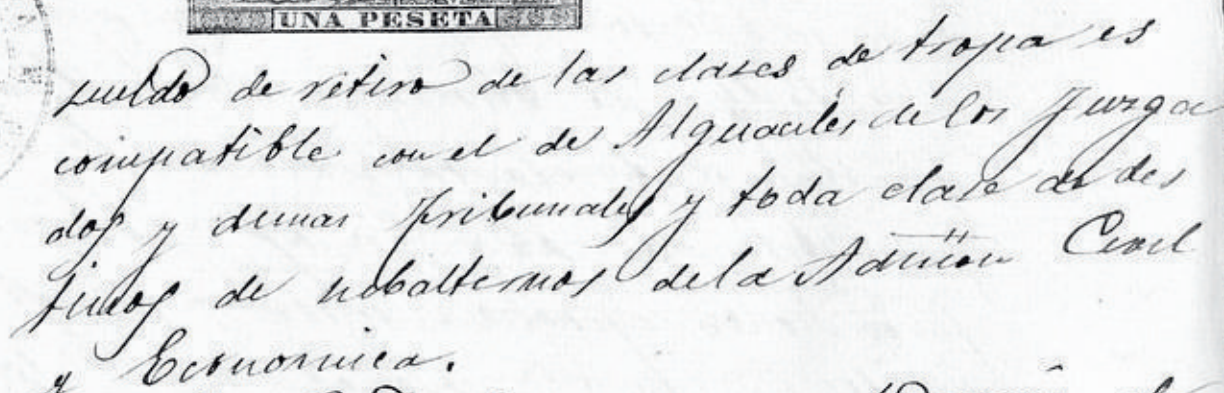 UNA PESETA
sueldo de retiro de las clases de tropa es
compatible con el de Alguaciles de los Juzga
dos y demas Tribunales y toda clase de des
tinos de subalternos de la Admon Civil
y Economica.